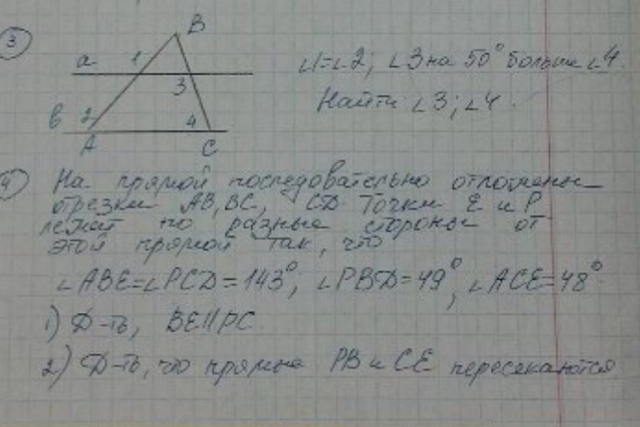 3
B
a 1
3
в 2 4
A C
∠1=∠2; ∠3 на 50° больше ∠4.
Найти ∠3; ∠4.
4
На прямой последовательно отложены
отрезки AB, BC, CD. Точки E и P
лежат по разные стороны от
этой прямой так, что
∠ABE=∠PCD=143°, ∠PBD=49°, ∠ACE=48°.
1) Д-ть, BE||PC.
2) Д-ть, что прямые PB и CE пересекаются